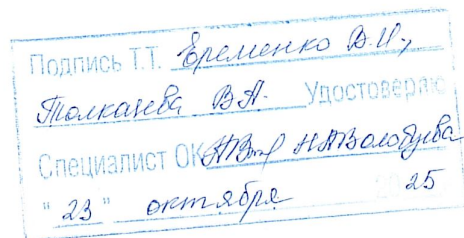 Подпись Т.Т. Еременко В.И,
Толкачева В.А. Удостоверяю
Специалист ОК Н.А.Волобуева
" 23 " октября 25